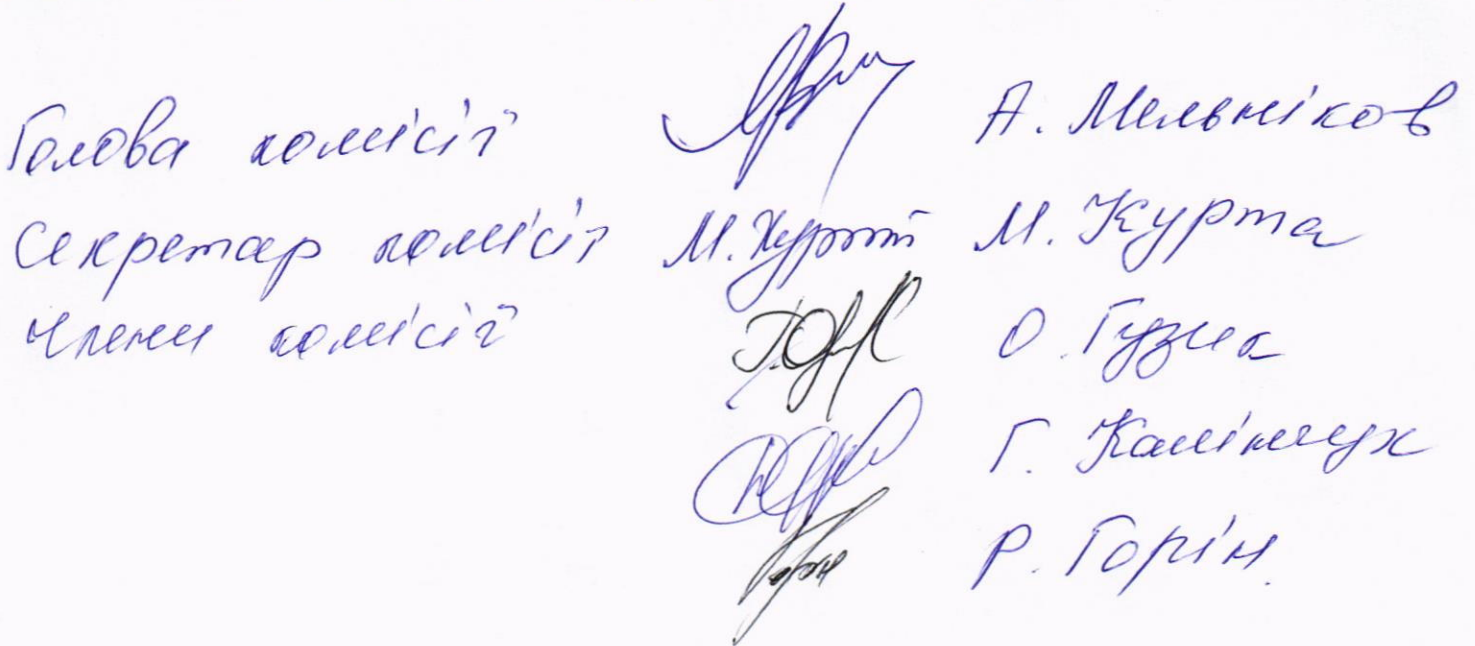 Голова комісії А. Мельніков
Секретар комісії М. Курта М. Курта
Члени комісії О. Гузик
Г. Калінчук
Р. Горін.